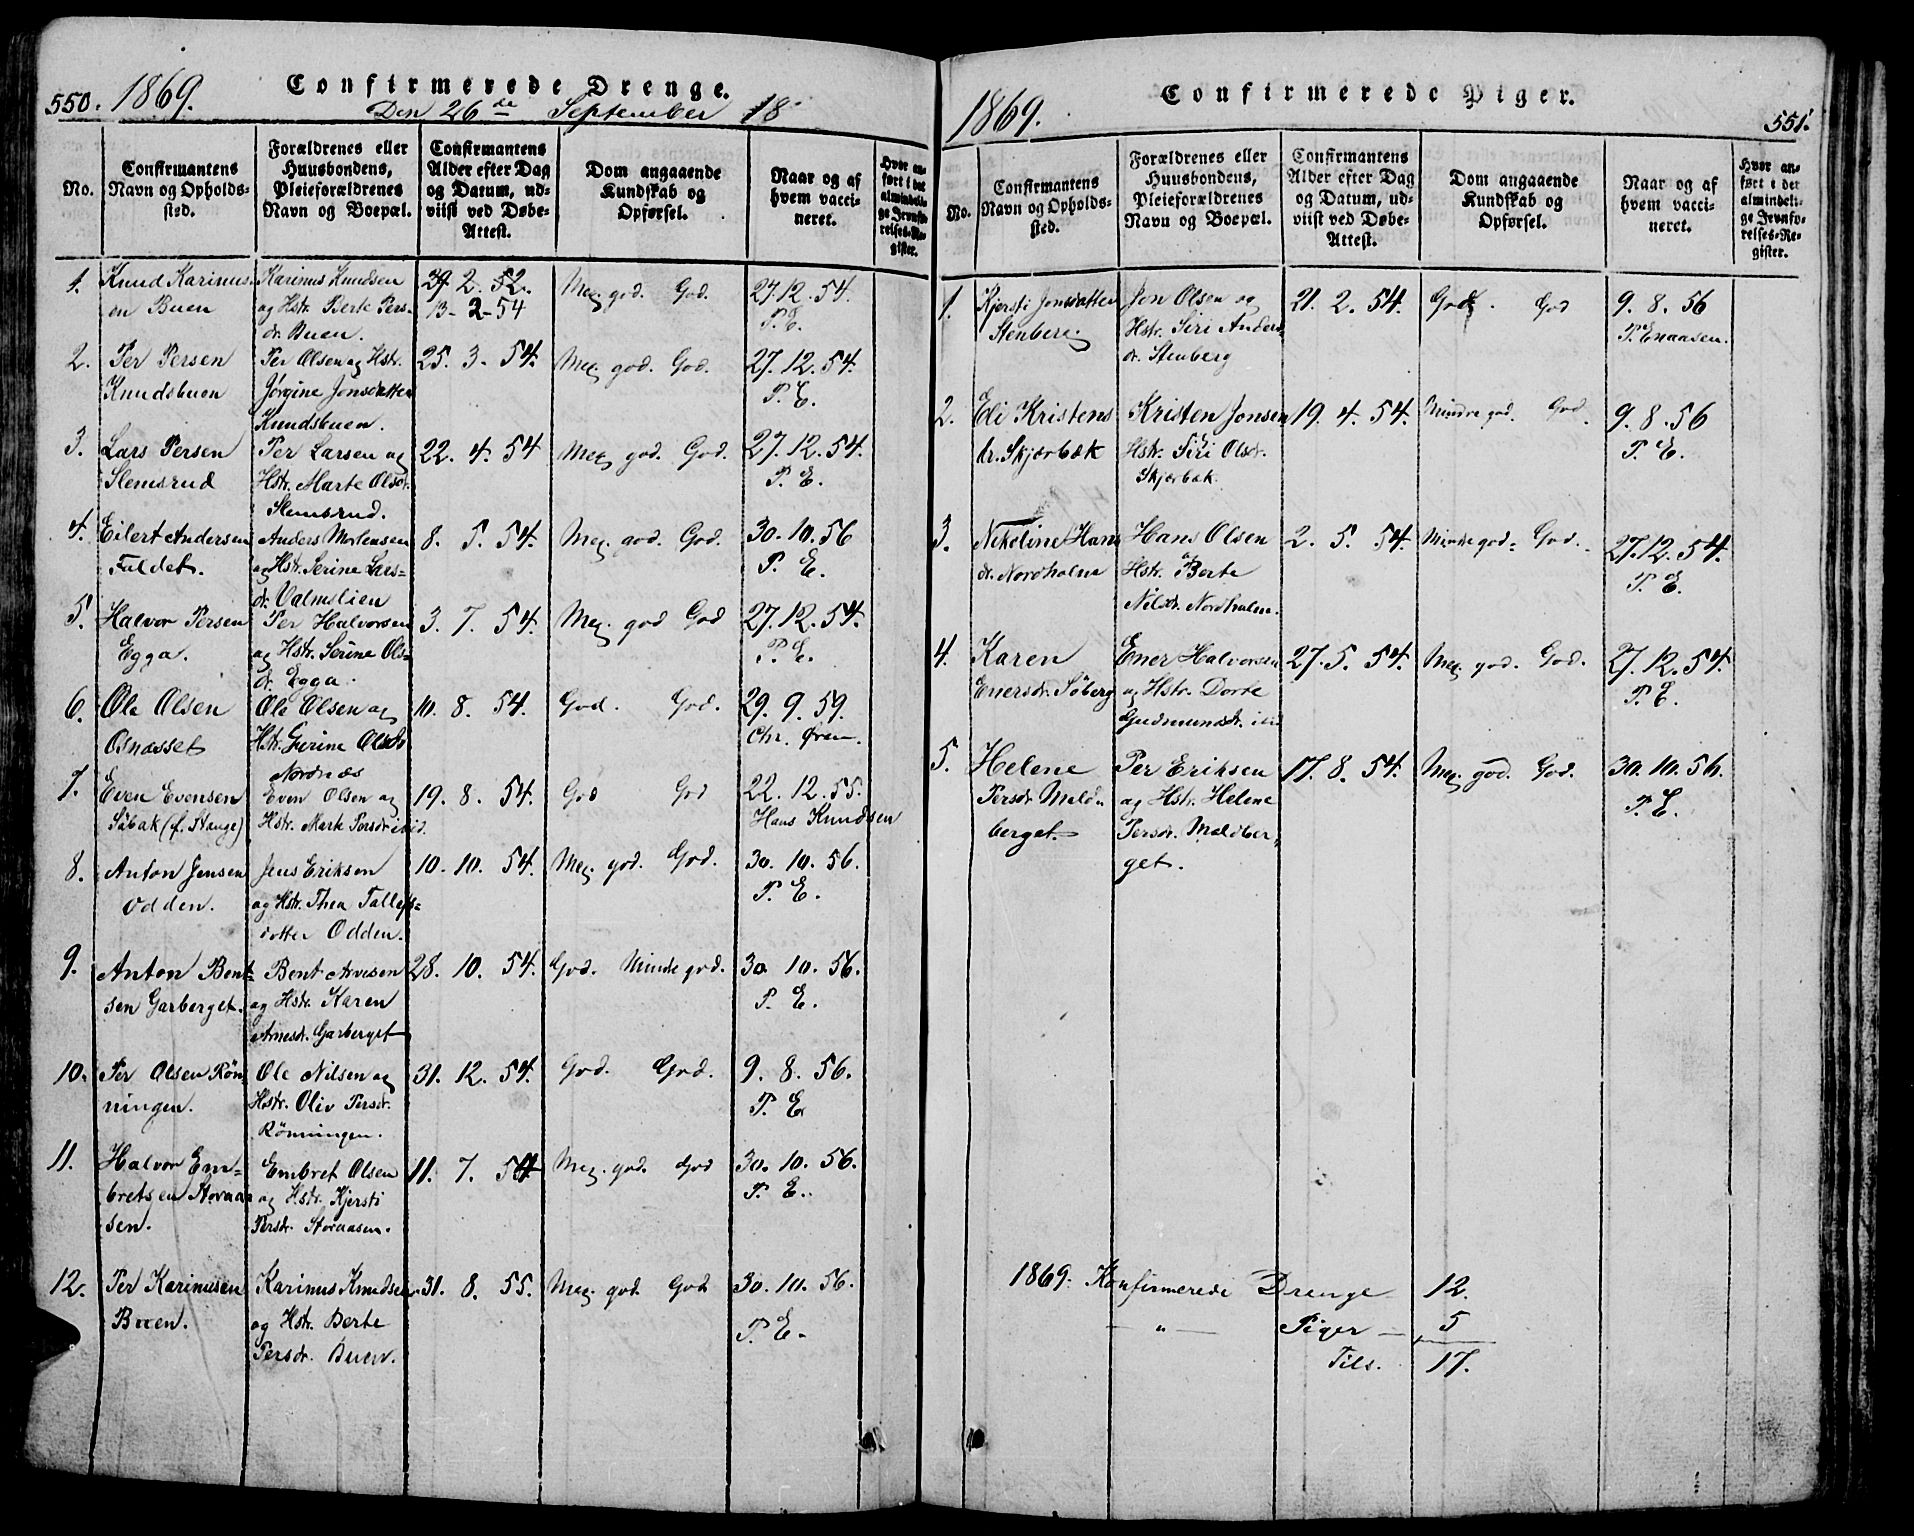 550. 1869. Confirmerede Drenge.
Den 26de September 18
No.
Confirmantens Navn og Opholdssted.
Forældrenes eller Huusbondens, Pleieforældrenes Navn og Boepæl.
Confirmantens Alder efter Dag og Datum, udviist ved Døbe-Attest.
Dom angaaende Kundskab og Opførsel.
Naar og af hvem vaccineret.
Hvor anført i det almindelige Jevnførelses-Register.
1. Knud Karinus- Karinus Knudsen 29. 2. 52. Meg. god. God. 27. 12. 54.
en Buen og Hstr. Berte Pers- 13-2-54 P. E.
dr. Buen.
2. Per Persen Per Olsen og Hstr. 25. 3. 54. Meg. god. God. 27. 12. 54.
Knudsbuen Jørgine Jonsdatter P. E.
Knudsbuen.
3. Lars Persen Per Larsen og 22. 4. 54 Meg. god. God. 27. 12. 54.
Slemsrud Hstr. Marte Olsdr. P. E.
Slemsrud.
4. Eilert Andersen Anders Mortensen 8. 5. 54. Meg. god. God. 30. 10. 56
Faldet. og Hstr. Serine Lars- P. E.
dr. Valmslien
5. Halvor Persen Per Halvorsen 3. 7. 54. Meg. god God 27. 12. 54.
Egga. og Hstr. Serine Ols- P. E.
dr. Egga.
6. Ole Olsen Ole Olsen og 10. 8. 54. God. God. 29. 9. 59.
Osnæsset Hstr. Olsdr Chr. Øren.
Nordnæs
7. Even Evensen Even Olsen og 19. 8. 54. God God 22. 12. 55.
Søbak (f. Stange) Hstr. Marte Persdr. ibid. Hans Knudsen
8. Anton Jensen Jens Eriksen 10. 10. 54. Meg. god. God. 30. 10. 56.
Odden. og Hstr. Thea Tollefs- P. E.
datter Odden.
9. Anton Bent- Bent Arnesen 28. 10. 54. God. Mindre god. 30. 10. 56.
sen Garberget. og Hstr. Karen P. E.
Arnesdr. Garberget
10. Per Olsen Røn- Ole Nilsen og 31. 12. 54. God. God. 9. 8. 56.
ningen. Hstr. Oliv Persdr. P. E.
Rønningen.
11. Halvor Em- Embret Olsen 11. 7. 54 Meg. god. God 30. 10. 56.
bretsen Storaa- og Hstr. Kjersti P. E.
sen. Persdr. Storaasen.
12. Per Karinusen Karinus Knudsen 31. 8. 55. Meg. god God 30. 10. 56.
Buen. og Hstr. Berte P. E.
Persdr. Buen.
1869. Confirmerede Piger. 551.
No.
Confirmantens Navn og Opholdssted.
Forældrenes eller Huusbondens, Pleieforældrenes Navn og Boepæl.
Confirmantens Alder efter Dag og Datum, udviist ved Døbe-Attest.
Dom angaaende Kundskab og Opførsel.
Naar og af hvem vaccineret.
Hvor anført i det almindelige Jevnførelses-Register.
1. Kjersti Jonsdatter Jon Olsen og 21. 2. 54. God. God 9. 8. 56
Stenberg Hstr. Siri Anders- P. Enaasen.
dr. Stenberg
2. Eli Kristens Kristen Jonsen 19. 4. 54. Mindre god. God. 9. 8. 56
dr. Skjærbæk Hstr. Siri Olsdr. P. E.
Skjærbæk.
3. Nikoline Hans Hans Olsen 2. 5. 54. Mindre god. God. 27. 12. 54.
dr. Nordholm Hstr. Berte P. E.
Nilsdr. Nordholm.
4. Karen Ener Halvorsen 27. 5. 54. Meg. god. God. 27. 12. 54.
Enersdr. Søberg og Hstr. Dorte P. E.
Gudmundsdr. ibid
5. Helene Per Eriksen 17. 8. 54. Meg. god. God. 30. 10. 56.
Persdr. Mold- og Hstr. Helene P. E.
berget. Persdr. Moldber-
get.
1869. Konfirmerede Drenge 12.
— " — Piger — 5
Tils. 17.